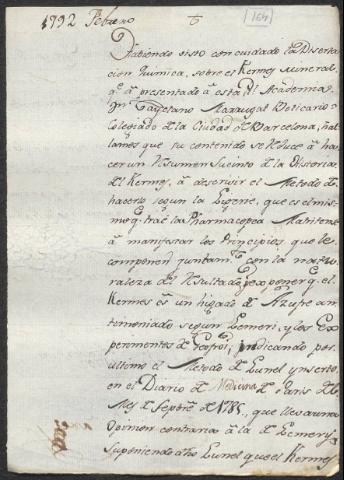 1792 Febrero
164
Habiendo visto con cuidado la Diserta
cion quimica, sobre el Kermes mineral
qe. â presentado â esta Rl. Academia
Dn. Cayetano Boticario
Colegiado de la Ciudad de Barcelona, ha
llamos que su contenido se reduce â ha
cer un Resumen Sucinto de la Historia
del Kermes, â descrivir el Metodo de
hacerlo segun la que es el mis
mo q. trae la Pharmacopea Matritense
â manifestar los Principios que le
componen juntamte. con la natu
raleza del Resultado; exponer q. el
Kermes es un higado de Azufre an
timoniado segun Lemeri, y los Expe
rimentos de Geofroi, indicando por
ultimo el Metodo de Lunel ynserto
en el Diario de Medicina de Paris del
Mes de Septbre. de 1785, que lleva una
Opinion contraria â la de Lemery
Suponiendo dho Lunel que el Kermes